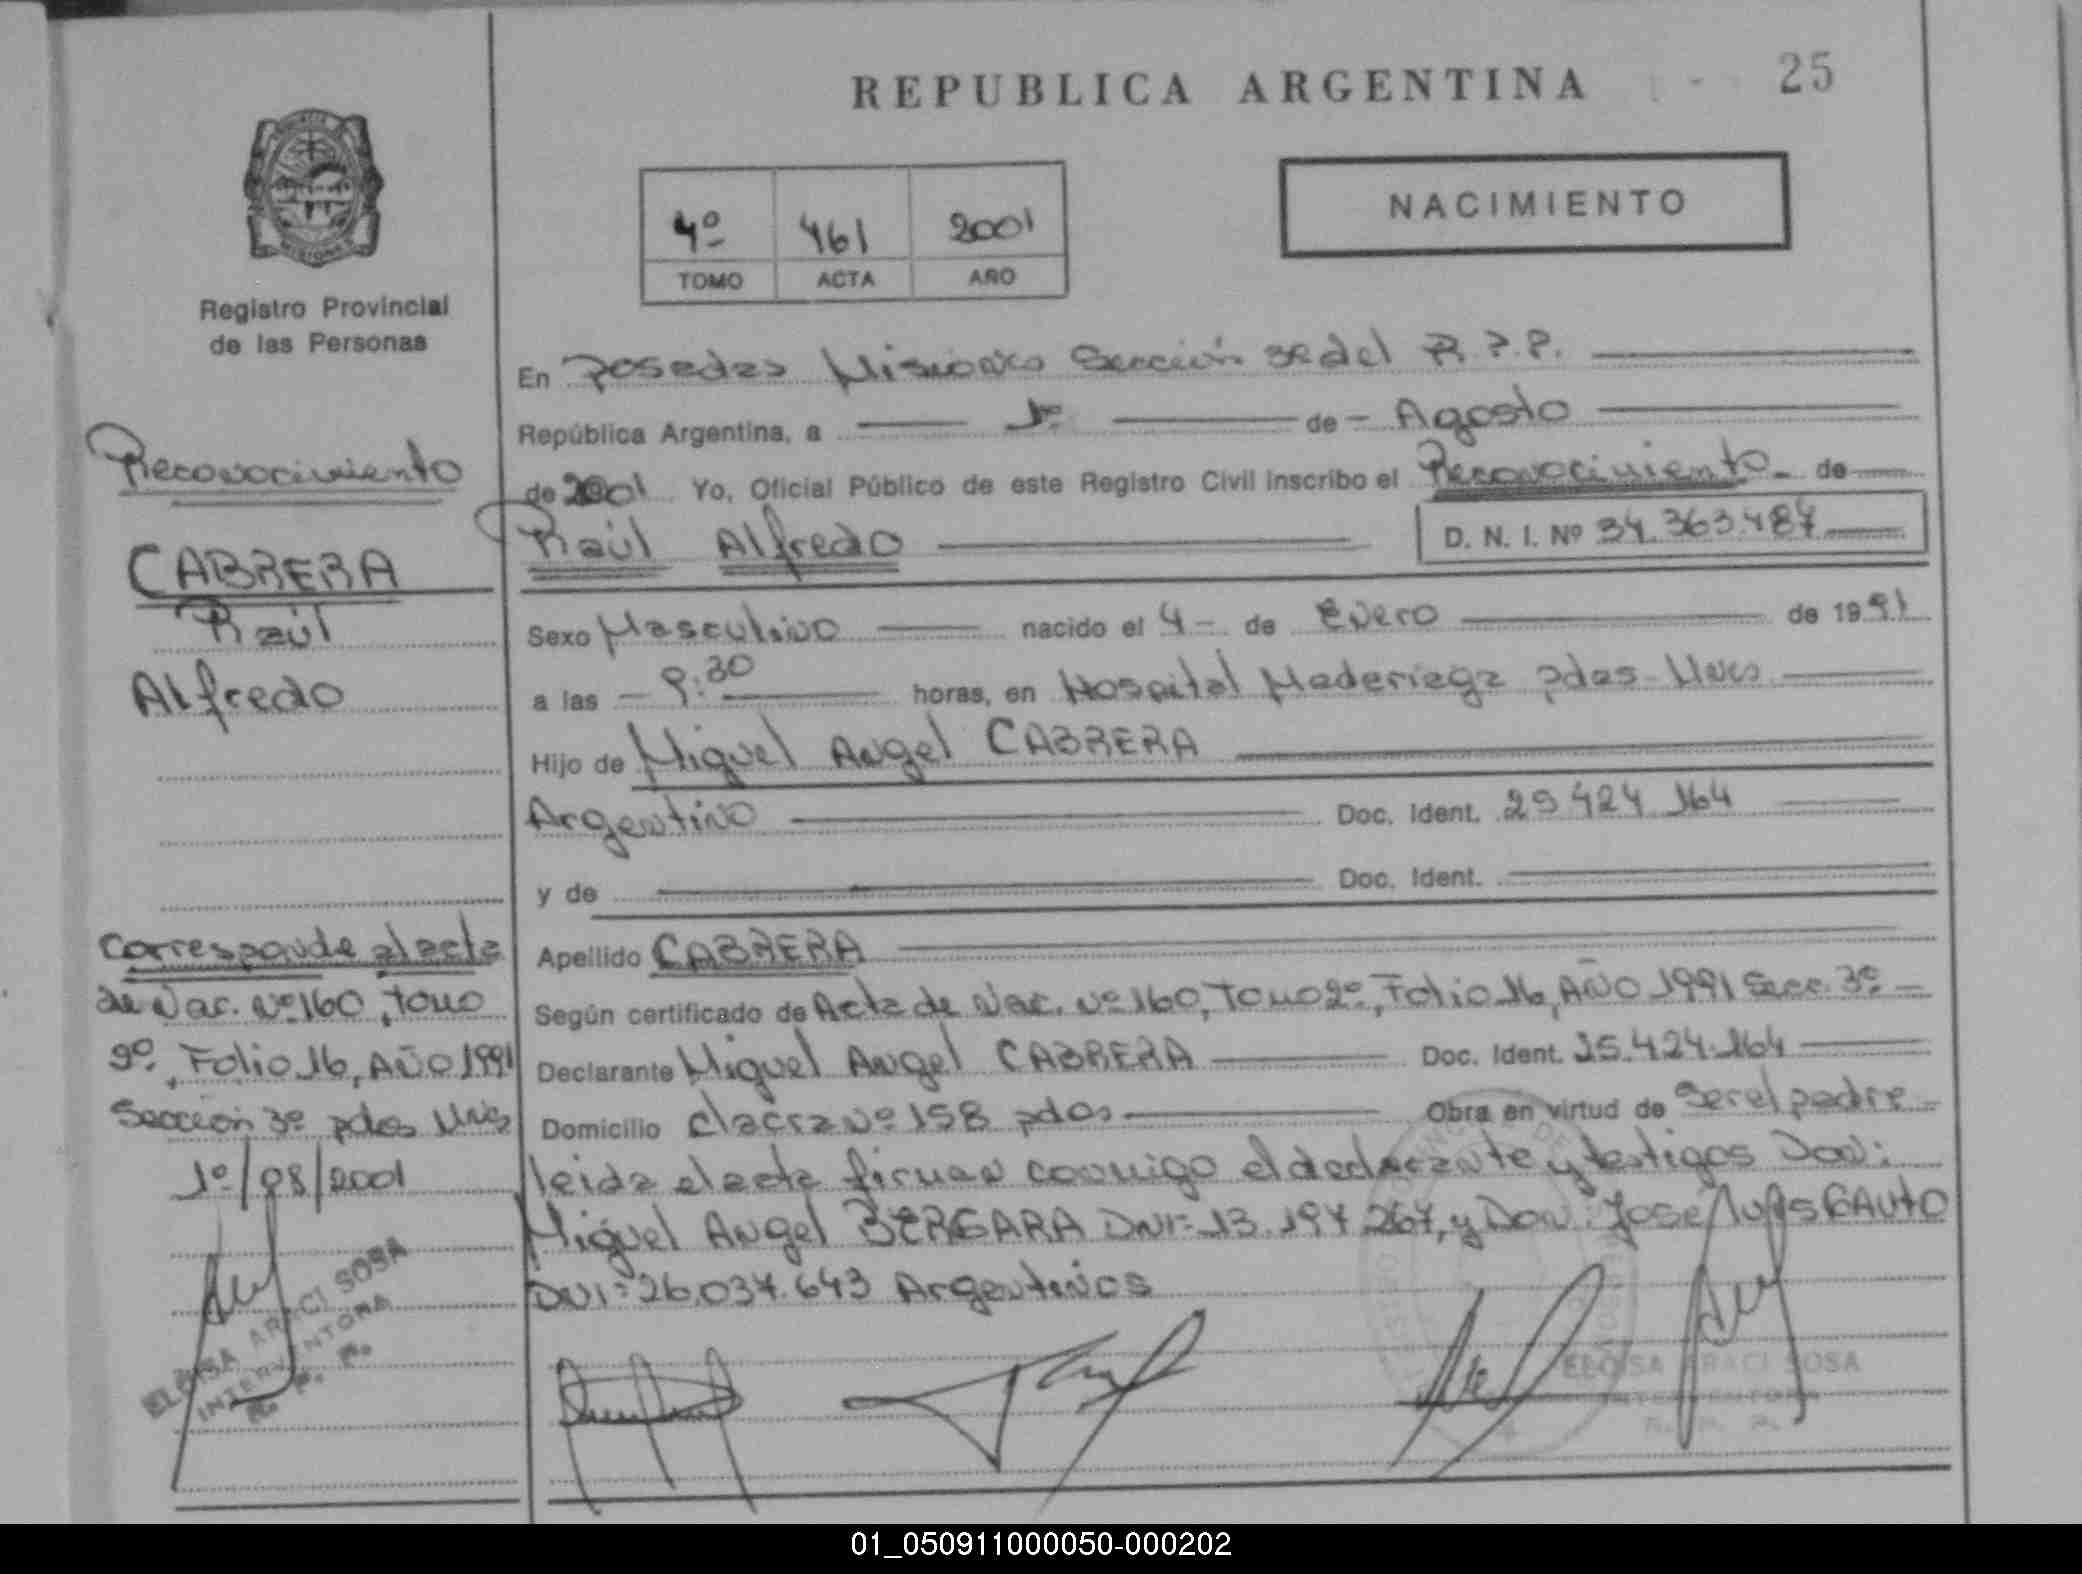 REPUBLICA ARGENTINA
25
4º 461 2001
TOMO ACTA AÑO
NACIMIENTO
MISIONES
Registro Provincial
de las Personas
Reconocimiento
CABRERA
Raúl
Alfredo
Corresponde al acta
de Nac. Nº 160, Tomo
2º, Folio 16, AÑO 1991
Sección 3º pdas Mnes
1º/08/2001
ELOISA ARACI SOSA
INTERVENTORA
R. P. P.
En Posadas Misiones Sección 3ª del R.P.P.
República Argentina, a 1º de Agosto
de 2001 Yo, Oficial Público de este Registro Civil inscribo el Reconocimiento de
Raúl Alfredo D. N. I. Nº 34.363.487
Sexo Masculino nacido el 4 de Enero de 1991
a las 9:30 horas, en Hospital Madariaga pdas Mnes
Hijo de Miguel Angel CABRERA
Argentino Doc. Ident. 25 424 164
y de Doc. Ident.
Apellido CABRERA
Según certificado de Acta de Nac. Nº 160, Tomo 2º, Folio 16, AÑO 1991 Secc. 3º
Declarante Miguel Angel CABRERA Doc. Ident. 25.424.164
Domicilio chacra Nº 158 pdas Obra en virtud de Ser el padre
leida el acta firman conmigo el declarante y testigos Don:
Miguel Angel BERGARA DNI= 13.197.267, y Don: Jose Luis GAUTO
DNI= 26.037.643 Argentinos
ELOISA ARACI SOSA
INTERVENTORA
R. P. P.
01_050911000050-000202